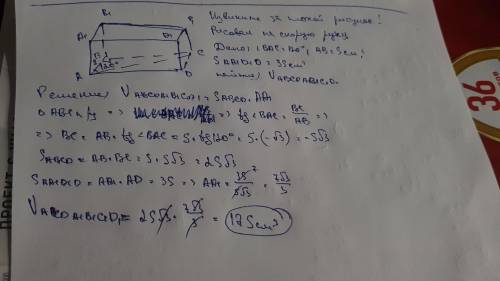 Извините за плохой рисунок!
Рисовал на скорую руку
Дано: ∠BAC=120°, AB=5см,
S AA1D1D = 35см²
найти: V ABCDA1B1C1D1
B1
A1
D1
C
A
D
Решение: V ABCDA1B1C1D1 = S ABCD · AA1
=> tg∠BAC = BC/AB =>
=> BC = AB · tg∠BAC = 5 · tg120° = 5 · (-√3) = -5√3
S ABCD = AB · BC = 5 · 5√3 = 25√3
S AA1D1D = AA1 · AD = 35 => AA1 = 35/5√3 = 7√3/3
V ABCDA1B1C1D1 = 25√3 ·
= 175см³
36
ПРОЕКТ